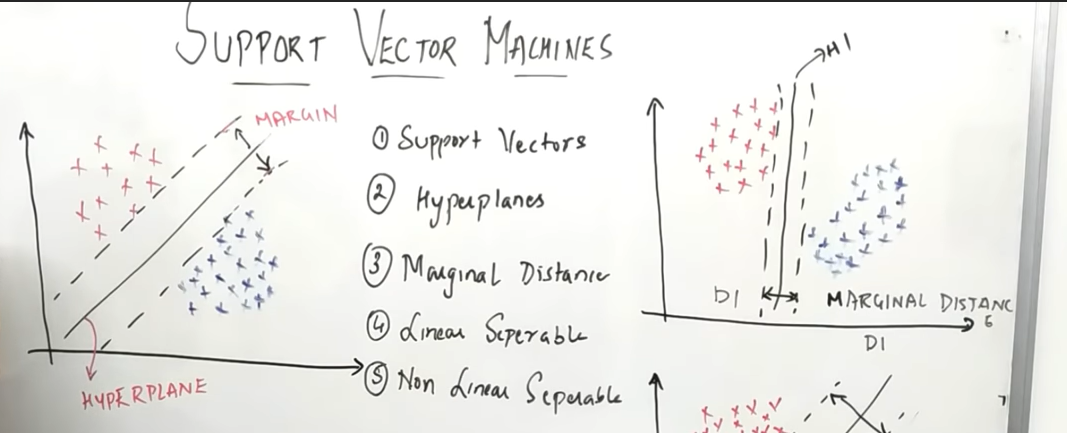 SUPPORT VECTOR MACHINES
MARGIN
HYPERPLANE
① Support Vectors
② Hyperplanes
③ Marginal Distance
④ Linear Seperable
⑤ Non Linear Seperable
H1
D1
MARGINAL DISTANCE
D1